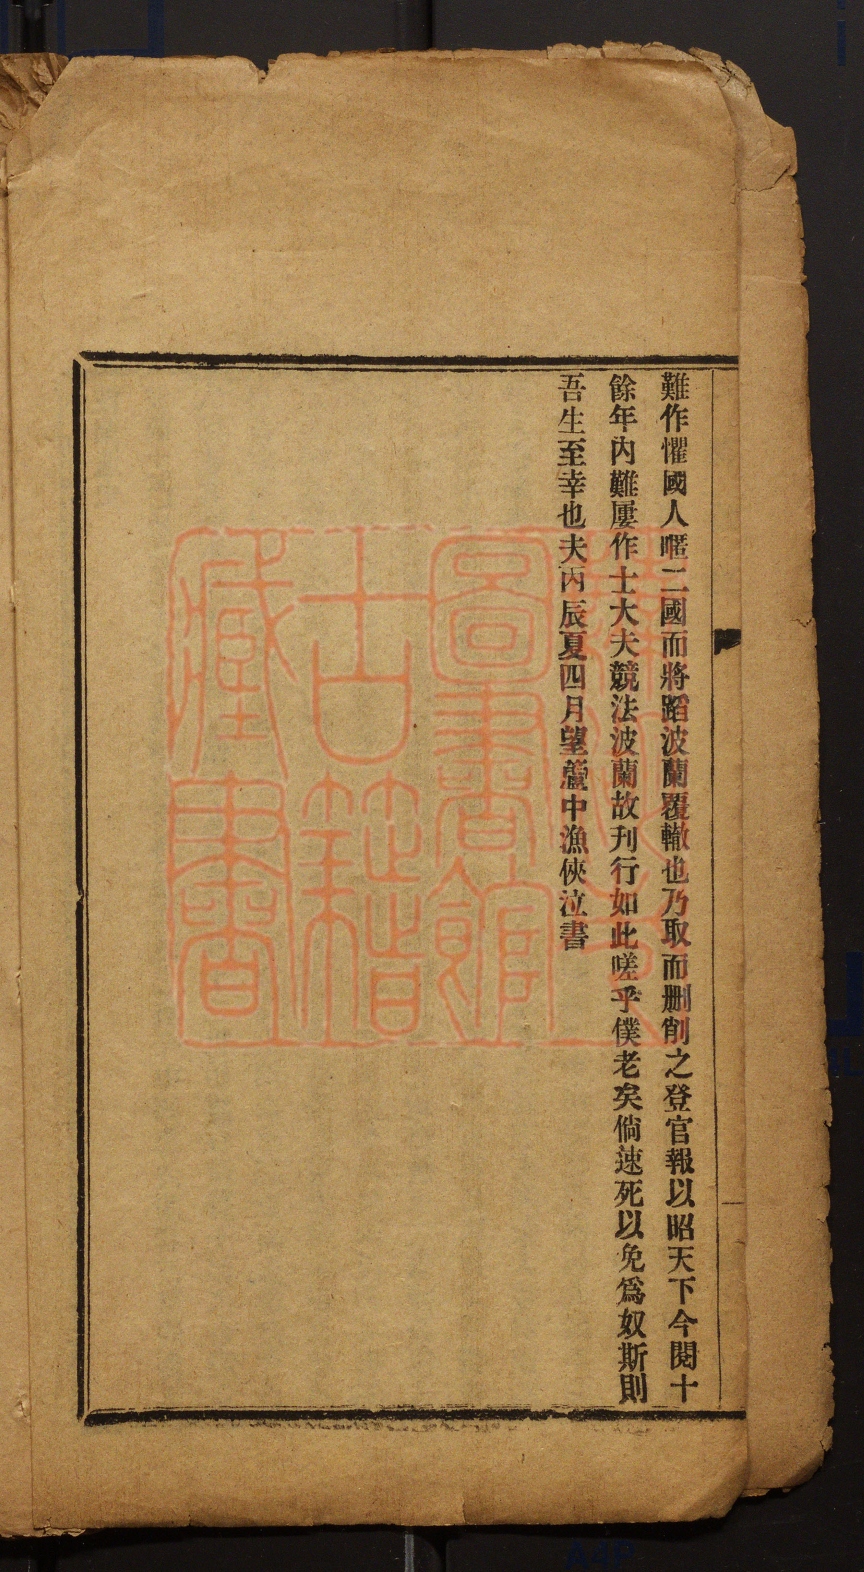 難作懼國人暱二國而將蹈波蘭覆轍也乃取而删削之登官報以昭天下今閱十
餘年內難屢作士大夫競法波蘭故刊行如此嗟乎僕老矣倘速死以免爲奴斯則
吾生至幸也夫丙辰夏四月望蘆中漁俠泣書
圖書館
古籍
藏書